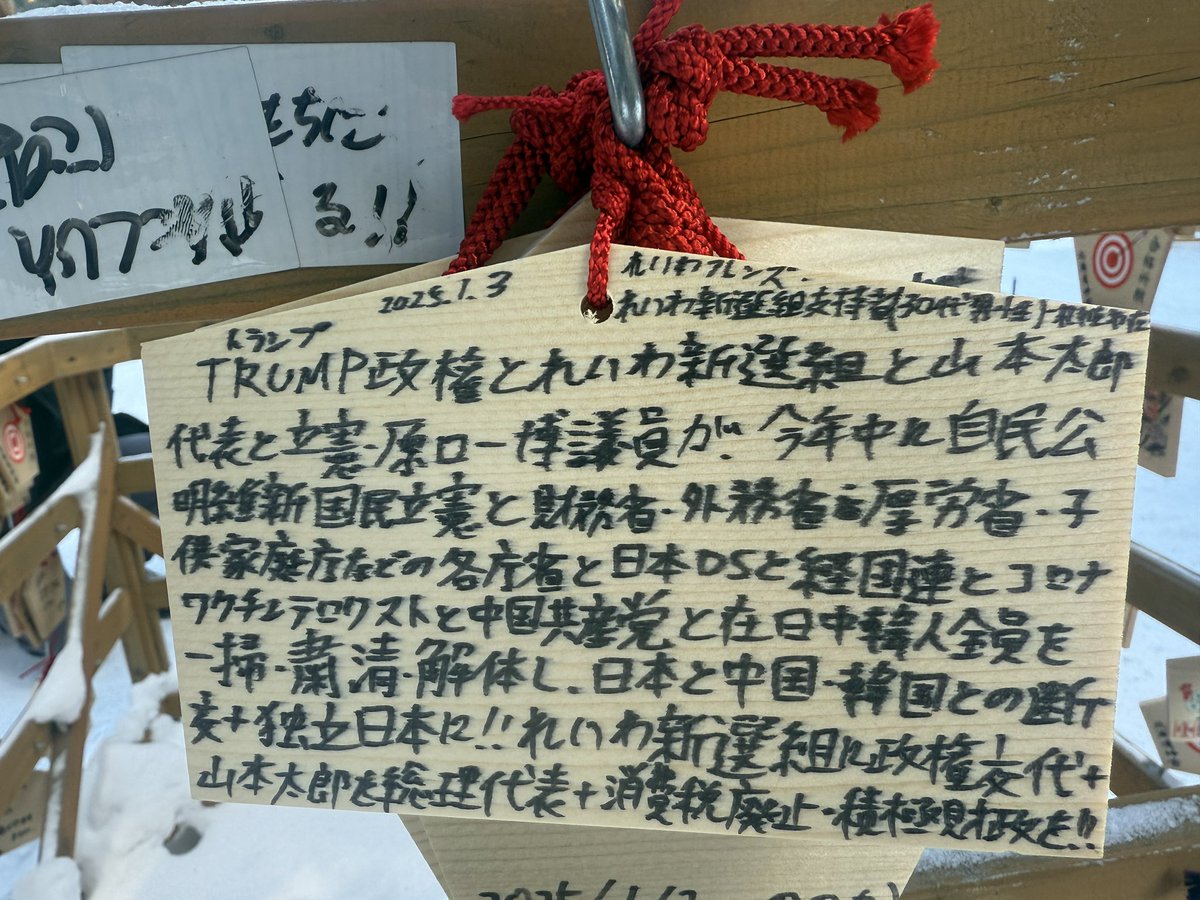 もちにこ
る!!
2025.1.3
れいわフレンズ
れいわ新選組支持者(30代男性)
トランプ
TRUMP政権とれいわ新選組と山本太郎
代表と立憲・原口一博議員が、今年中に自民公
明維新国民立憲と財務省・外務省・厚労省・子
供家庭庁などの各庁省と日本DSと経団連とコロナ
ワクチンテロリストと中国共産党と在日中韓人全員を
一掃・粛清・解体し、日本と中国・韓国との断行
交+独立日本に!!れいわ新選組に政権交代+
山本太郎を総理代表+消費税廃止・積極財政を!!